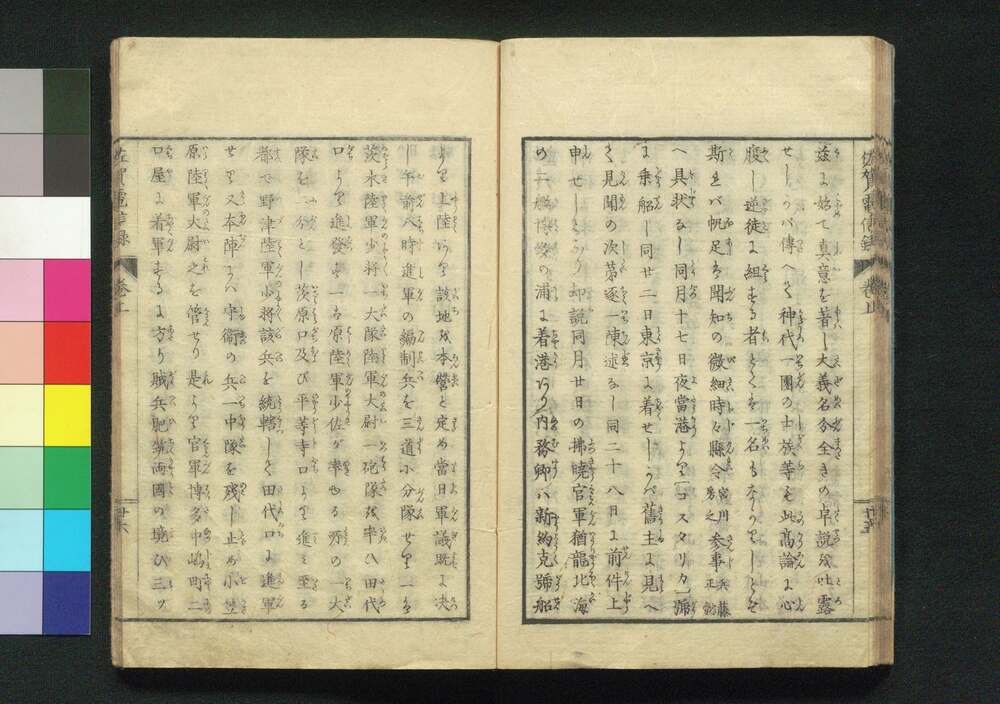 茲に始て真意を著し大義名分全きの卓説を吐露
せしかバ傳へきく神代一團の士族等も此高論に心
腹し逆徒に組する者とてハ一名もなかりしとぞ
斯れバ帆足は聞知の微細時々縣令 参事
へ具状なし同月十七日夜當港より「コスタリカ」號
に乗船し同廿二日東京に着せしかバ舊主に見へ
て見聞の次第逐一陳述なし同二十八日に前件上
申せしとなり却説同月廿日の拂暁官軍猶龍北海
の二艦博多の浦に着港ありり内務卿ハ新約克號船
より上陸ありて該地を本營と定め當日軍議既に决
し午前八時進軍の編制兵を三道小分隊せり一は
茨木陸軍少将一大隊陸軍大尉一砲隊を率ひ田代
口より進發し一は原陸軍少佐が率ゐる所の一大
隊を二分とし茨原口及び平等寺口より進ミ至る
都て野津陸軍少将該兵を統轄して田代口に進軍
せり又本陣にハ守衞の兵一中隊を残し止め小笠
原陸軍大尉之を管せり是より官軍博多中嶋町二
口屋に着軍するに方り賊兵肥筑両國の境ひ三ツ
佐賀電信録 巻上